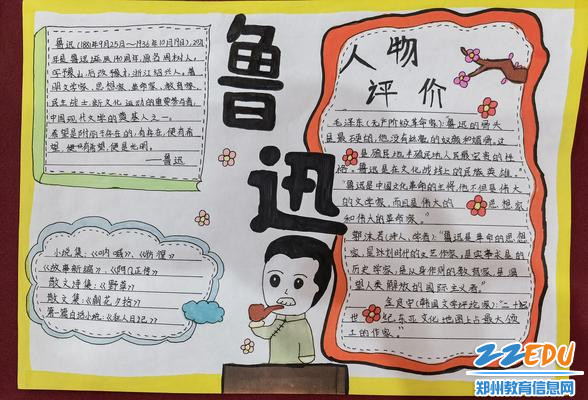 鲁迅
鲁迅(1881年9月25日~1936年10月19日),2021
年是鲁迅诞辰140周年,原名周树人,
字豫山,后改豫才,浙江绍兴人。著
名文学家、思想家、革命家、教育家、
民主战士,新文化运动的重要参与者,
中国现代文学的奠基人之一。
希望是附丽于存在的,有存在,便有希
望,便有希望,便是光明。
——鲁迅
小说集:《呐喊》、《彷徨》
《故事新编》、《阿Q正传》
散文诗集:《野草》
散文集:《朝花夕拾》
第一篇白话小说:《狂人日记》
人物
评价
毛泽东(无产阶级革命家):鲁迅的骨头
是最硬的,他没有丝毫的奴颜和媚骨,这
是殖民地半殖民地人民最宝贵的性
格。鲁迅是在文化战线上的民族英雄。
"鲁迅是中国文化革命的主将,他不但是伟大
的文学家,而且是伟大的思想家
和伟大的革命家。
郭沫若(诗人、学者):"鲁迅是革命的思想
家,是划时代的文艺作家,是实事求是的
历史学家,是以身作则的教育家,是渴
望人类解放的国际主义者。
金良守(韩国文学评论家):二十世
世纪东亚文化地图上占最大领
土的作家。
22EDU
郑州教育信息网